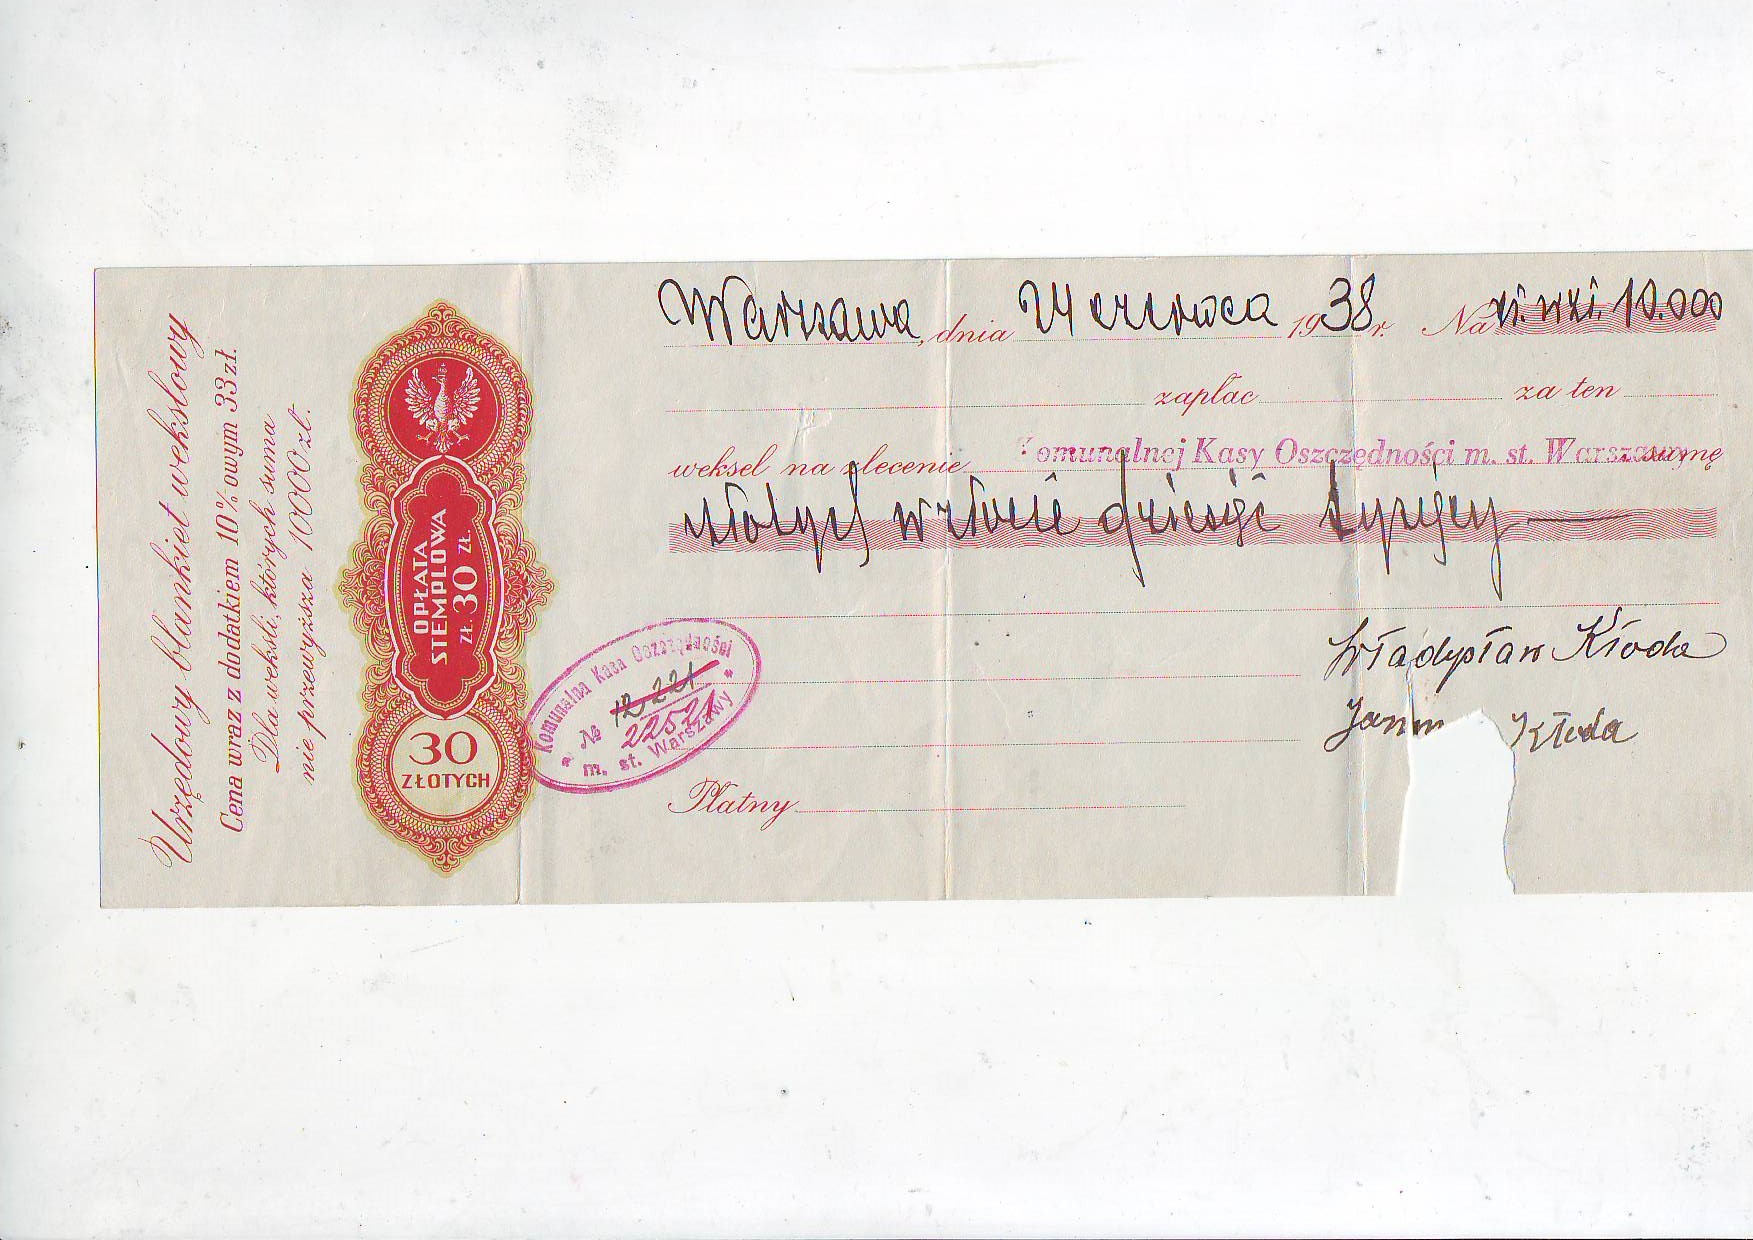 Urzędowy blankiet wekslowy
Cena wraz z dodatkiem 10% owym 33 zł.
Dla weksli, których suma
nie przewyższa 10000 zł.
OPŁATA
STEMPLOWA
ZŁ. 30 ZŁ.
30
ZŁOTYCH
Warszawa, dnia 24 czerwca 1938 r. Na 10.000
zapłac za ten
weksel na zlecenie Komunalnej Kasy Oszczędności m. st. Warszawy sumę
złotych w złocie dziesięć tysięcy
Władysław Kłoda
Kłoda
Komunalna Kasa Oszczędności
№ 12221
22521
m. st. Warszawy
Płatny